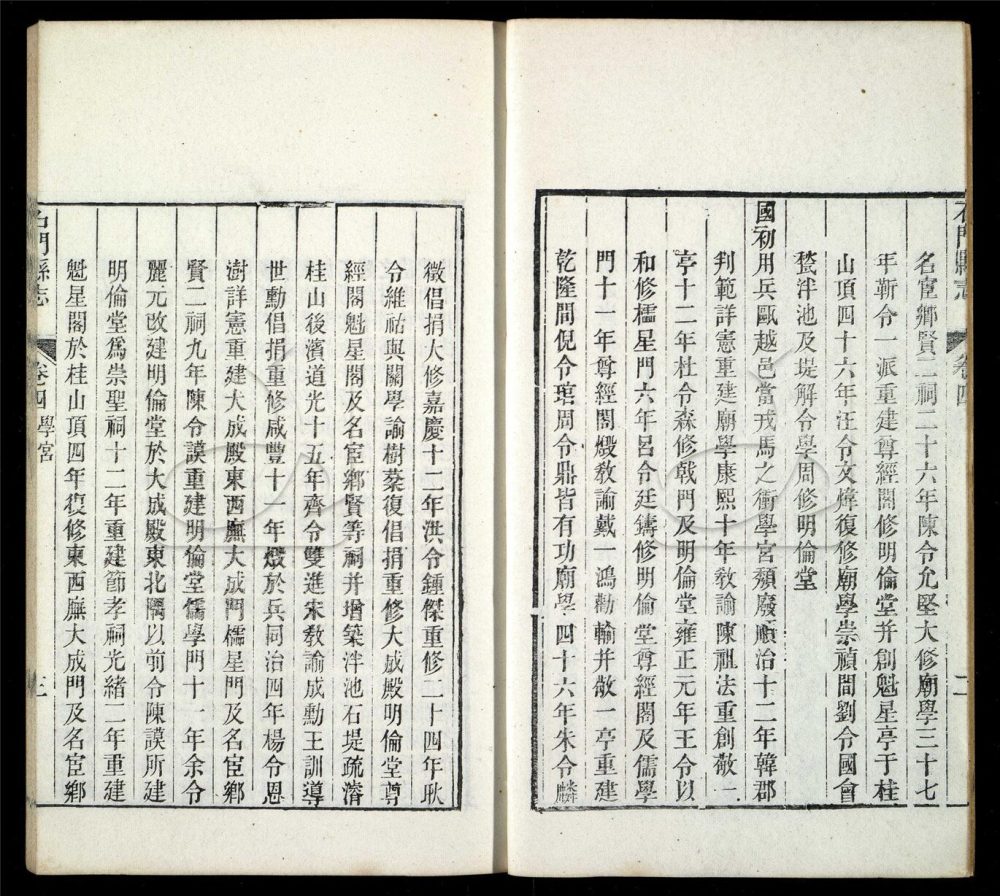 石門縣志 卷四 二
名宦鄉賢二祠二十六年陳令允堅大修廟學三十七
年靳令一派重建尊經閣修明倫堂并創魁星亭于桂
山頂四十六年汪令文煒復修廟學崇禎間劉令國會
甃泮池及堤解令學周修明倫堂
國初用兵甌越邑當戎馬之衝學宮頹廢順治十二年韓郡
判範詳憲重建廟學康熙十年敎諭陳祖法重創敬一
亭十二年杜令森修戟門及明倫堂雍正元年王令以
和修櫺星門六年呂令廷鑄修明倫堂尊經閣及儒學
門十一年尊經閣燬敎諭戴一鴻勸輸并敬一亭重建
乾隆間倪令琯周令鼎皆有功廟學四十六年朱令麟
徵倡捐大修嘉慶十二年洪令鍾傑重修二十四年耿
令維祜與關學諭樹棻復倡捐重修大成殿明倫堂尊
經閣魁星閣及名宦鄉賢等祠并增築泮池石堤疏濬
桂山後濱道光十五年齊令雙進宋敎諭成勳王訓導
世勳倡捐重修咸豐十一年燬於兵同治四年楊令恩
澍詳憲重建大成殿東西廡大成門櫺星門及名宦鄉
賢二祠九年陳令謨重建明倫堂儒學門十一年余令
麗元改建明倫堂於大成殿東北隅以前令陳謨所建
明倫堂爲崇聖祠十二年重建節孝祠光緒二年重建
魁星閣於桂山頂四年復修東西廡大成門及名宦鄉
石門縣志 卷四 學宮 三